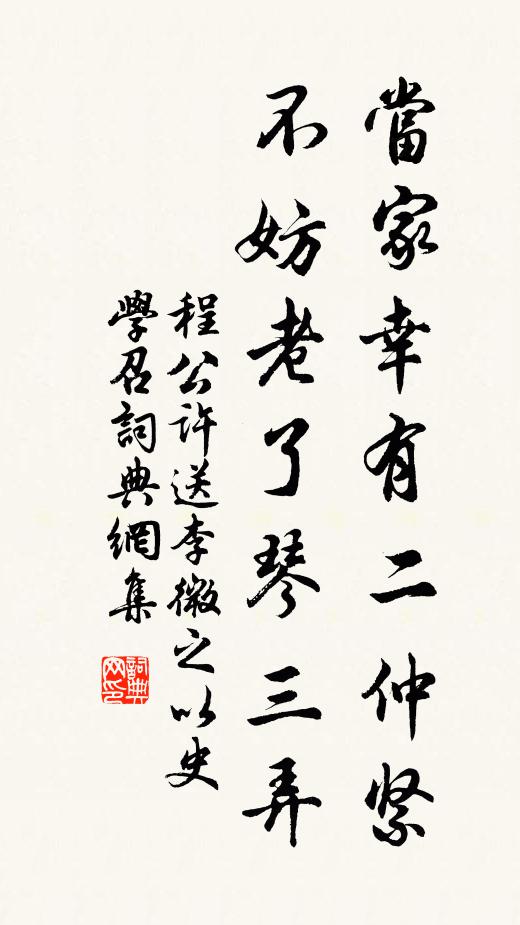 當家幸有二仲緊
不妨老了琴三弄
程公許送李微之以史
學召詞典網集
詞典網印